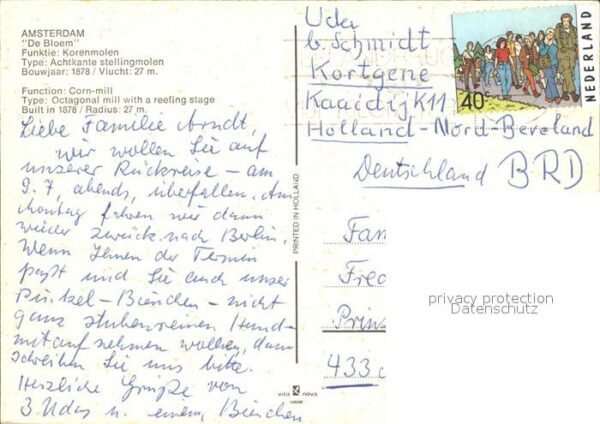 AMSTERDAM
"De Bloem"
Funktie: Korenmolen
Type: Achtkante stellingmolen
Bouwjaar: 1878 / Vlucht: 27 m.
Function: Corn-mill
Type: Octagonal mill with a reefing stage
Built in 1878 / Radius: 27 m.
Liebe Familie Arndt,
wir wollen Sie auf
unserer Rückreise - am
9.7, abends, überfallen. Am
Montag fahren wir dann
wieder zurück nach Berlin.
Wenn Ihnen der Termin
paßt und Sie auch unser
Runkel - Bienchen - nicht
ganz stubenreinen Hund -
mit aufnehmen wollen, dann
schreiben Sie uns bitte.
Herzliche Grüße von
3 Udas u. einem Bienchen
PRINTED IN HOLLAND
vita nova
Uda
b. Schmidt
Kortgene
Kaaidijk 11
Holland - Nord-Beveland
Deutschland BRD
40c
NEDERLAND
Fam
Fred
Prin
433
privacy protection
Datenschutz